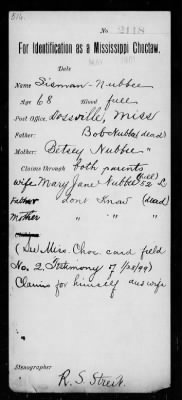 514.
No. 2118
For Identification as a Mississippi Choctaw.
NOV 1901
Date
Name Sisman-Nubbee
Age 68 Blood full
Post Office, Dossville, Miss
Father: Bob Nubbe (dead)
Mother: Betsey Nubbee "
Claims through both parents
wife Mary Jane Nubbee (full) 52
Father dont Know (dead)
Mother " " "
(See Miss. Choc. card field
No. 2, Testimony of 1/28/99)
Claims for himself and wife
Stenographer
R. S. Streit.